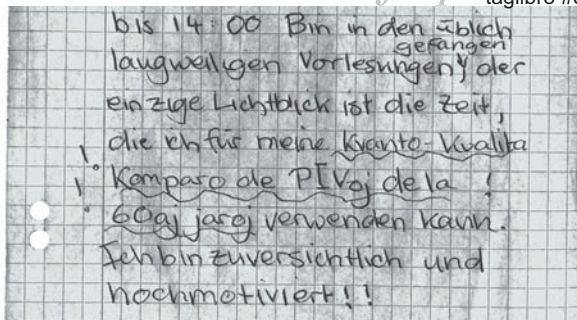 taglibro
bis 14:00 Bin in den üblich
gefangen
langweiligen Vorlesungen der
einzige Lichtblick ist die Zeit,
die ich für meine Kvanto-Kvalita
! Komparo de PIVoj de la !
60aj jaroj verwenden kann.
Ich bin zuversichtlich und
hochmotiviert!!